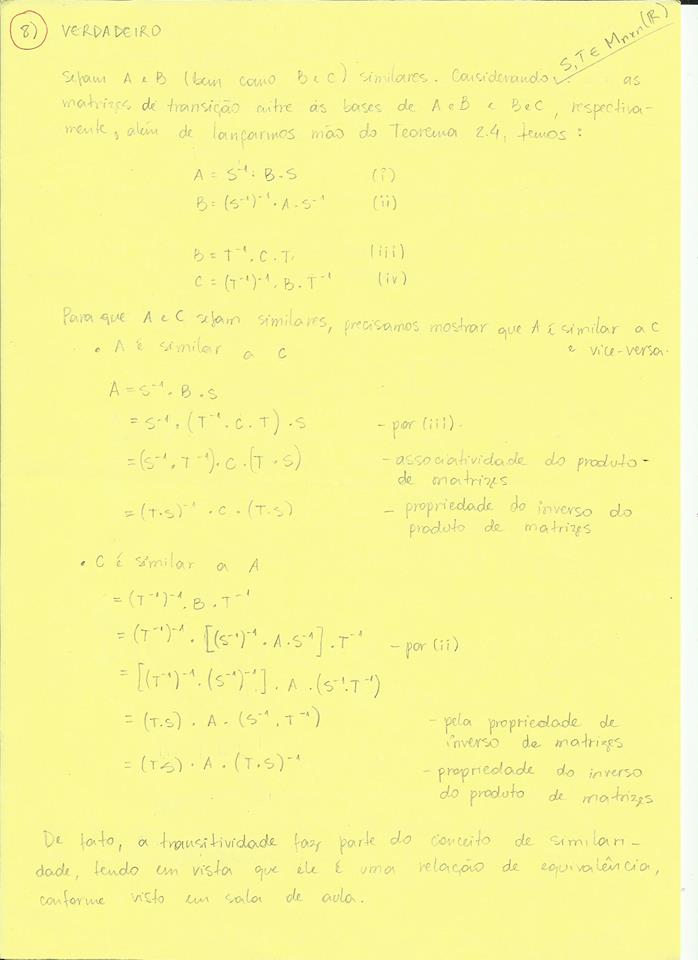 8) VERDADEIRO
S,T ∈ Mnxn(ℝ)
Sejam A e B (bem como B e C) similares. Considerando as
matrizes de transição entre as bases de A e B e B e C, respectiva-
mente, além de lançarmos mão do Teorema 2.4, temos:
A = S⁻¹. B. S (i)
B = (S⁻¹)⁻¹. A. S⁻¹ (ii)
B = T⁻¹. C. T. (iii)
C = (T⁻¹)⁻¹. B. T⁻¹ (iv)
Para que A e C sejam similares, precisamos mostrar que A é similar a C
e vice-versa.
• A é similar a C
A = S⁻¹. B. S
= S⁻¹. (T⁻¹. C. T). S - por (iii).
= (S⁻¹. T⁻¹). C. (T. S) - associatividade do produto
de matrizes
= (T.S)⁻¹. C. (T.S) - propriedade do inverso do
produto de matrizes
• C é similar a A
= (T⁻¹)⁻¹. B. T⁻¹
= (T⁻¹)⁻¹. [(S⁻¹)⁻¹. A. S⁻¹]. T⁻¹ - por (ii)
= [(T⁻¹)⁻¹. (S⁻¹)⁻¹]. A. (S⁻¹. T⁻¹)
= (T.S). A. (S⁻¹. T⁻¹) - pela propriedade de
inverso de matrizes
= (T.S). A. (T.S)⁻¹ - propriedade do inverso
do produto de matrizes
De fato, a transitividade faz parte do conceito de similari-
dade, tendo em vista que ele é uma relação de equivalência,
conforme visto em sala de aula.